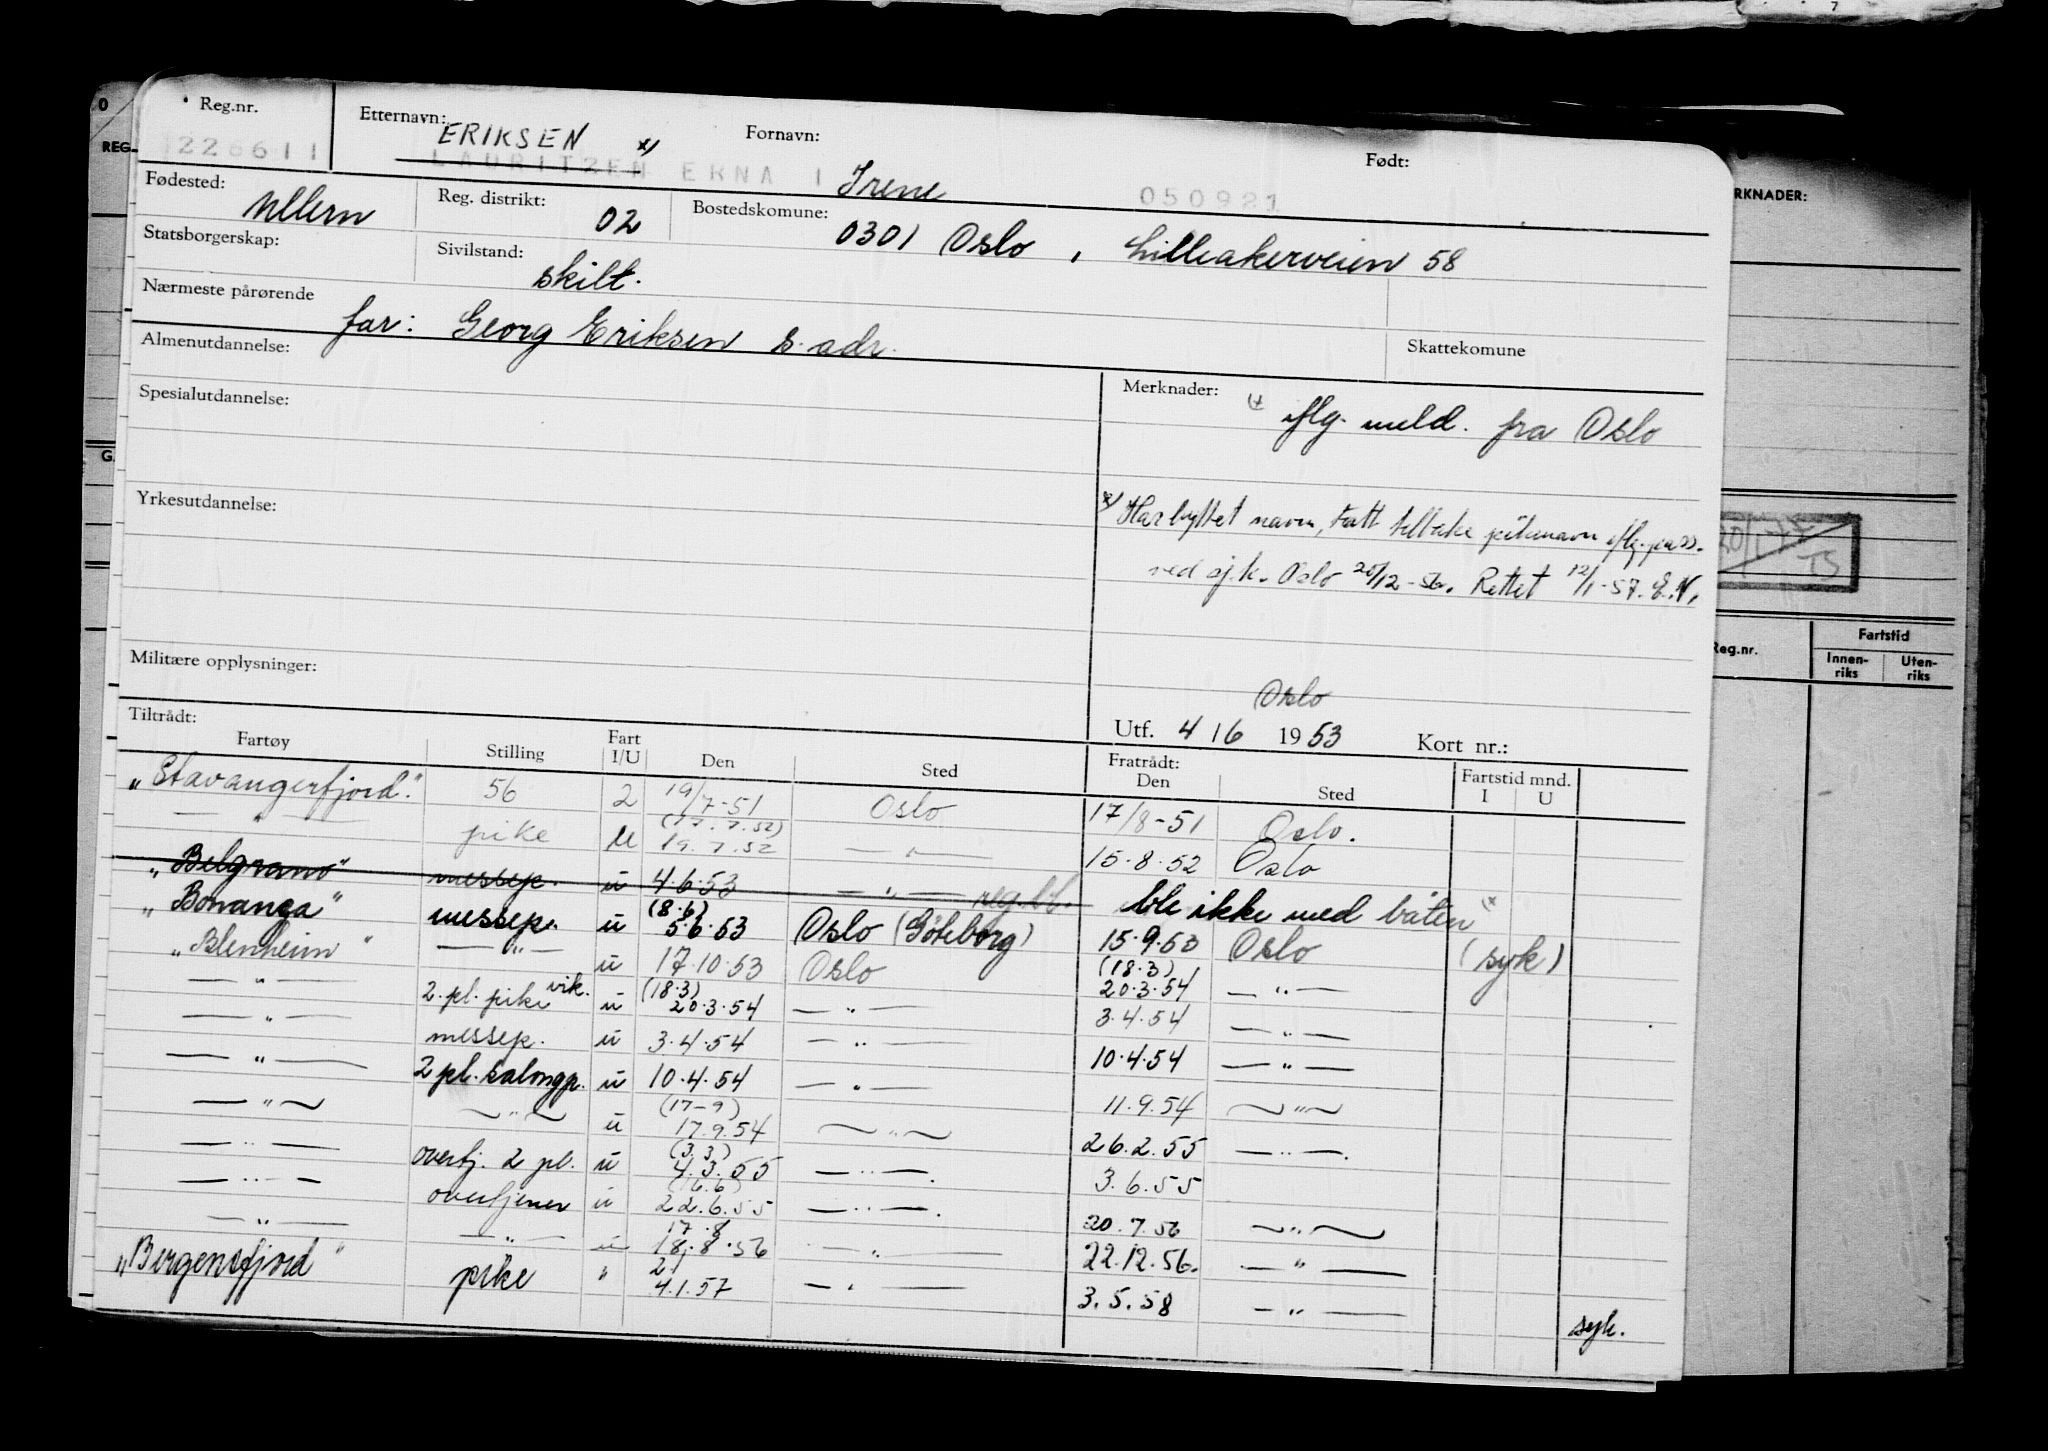 Reg.nr. Etternavn: ERIKSEN x) Fornavn: Født:
228611 LAURITZEN ERNA I Irene 050921
Fødested: Ullern Reg. distrikt: 02 Bostedskomune: 0301 Oslo, Lilleakerveien 58
Statsborgerskap: Sivilstand: skilt.
Nærmeste pårørende far: Georg Eriksen s. adr. Skattekomune
Almenutdannelse:
Spesialutdannelse: Merknader: x) iflg. meld. fra Oslo
Yrkesutdannelse: x) Har byttet navn, tatt tilbake pikenavn iflg. pass.
ved sj.k. Oslo 20/12-56. Rettet 12/1-57. E.N.
Militære opplysninger:
Oslo
Tiltrådt: Utf. 4/6 1953 Kort nr.:
Fartøy Stilling Fart I/U Den Sted Fratrådt: Den Sted Fartstid mnd. I U
"Stavangerfjord." 56 2 19/7-51 Oslo 17/8-51 Oslo.
— " — pike U (17.7.52) 19.7.52 — " — 15.8.52 Oslo
"Belgrano" messep. u 4.6.53 — " — reg.bl. ble ikke med båten x)
"Bonanza" messep. u (8.6) 5.6.53 Oslo (Göteborg) 15.9.53 Oslo (syk)
"Blenheim" — " — u 17.10.53 Oslo (18.3) 20.3.54 — " —
— " — 2. pl. pike vik. u (18.3) 20.3.54 — " — 3.4.54 — " —
— " — messep. u 3.4.54 — " — 10.4.54 — " —
— " — 2 pl. salongp. u 10.4.54 — " — 11.9.54 — " —
— " — — " — u (17-9) 17.9.54 — " — 26.2.55 — " —.
— " — overtj. 2 pl. u (3.3) 4.3.55 — " —. 3.6.55
— " — overtjener u (16.6) 22.6.55 — " —. 20.7.56 — " —
— " — — " — u 17.8 18.8.56 — " — 22.12.56. — " —
"Bergensfjord" pike " 2/1 4.1.57 — " — 3.5.58 — " — syk.
0
REG
G.
RKNADER:
TS
Reg.nr. Fartstid
Innen-riks Uten-riks